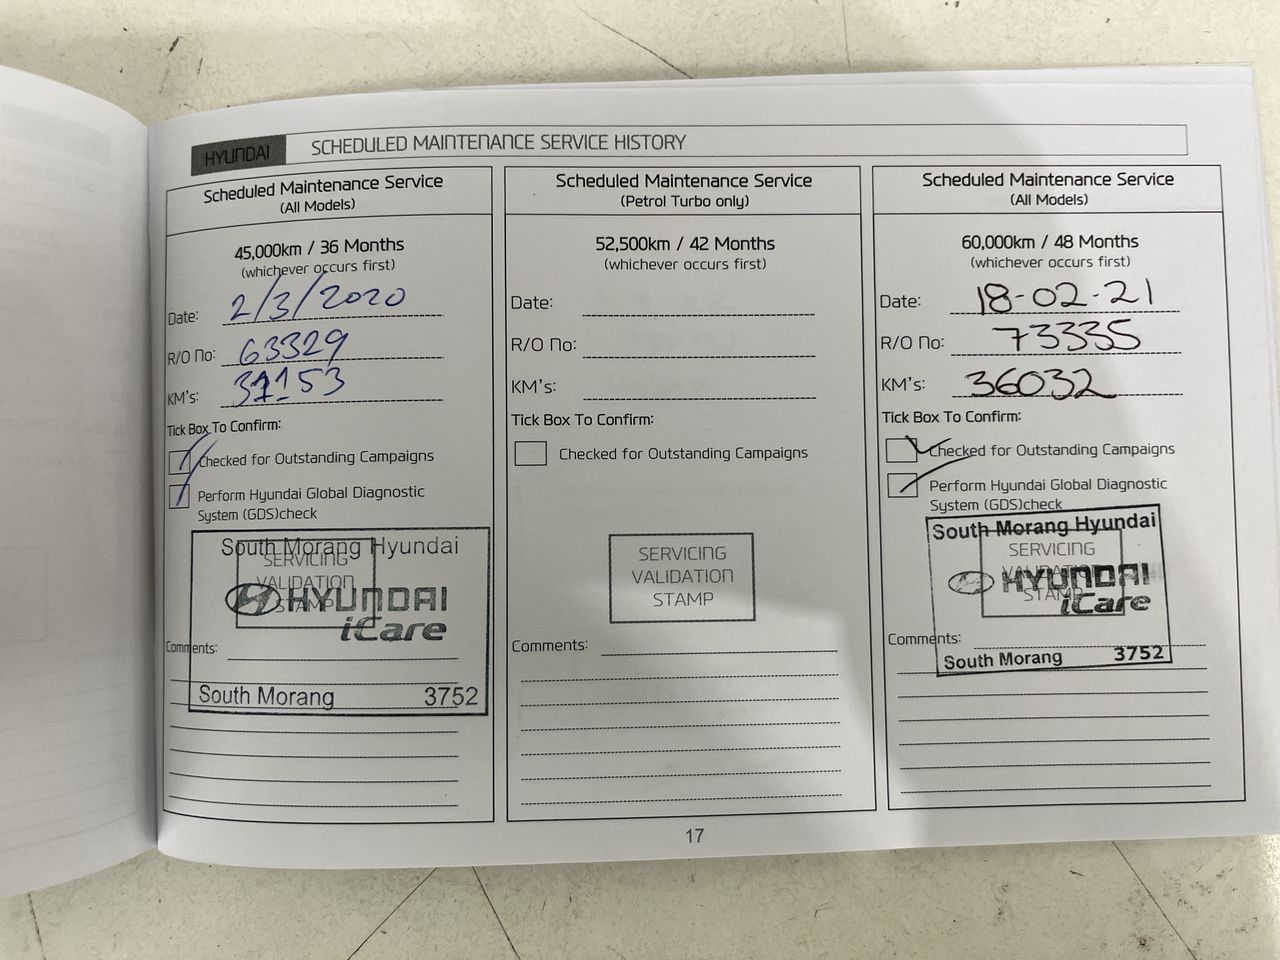 HYUNDAI
SCHEDULED MAINTENANCE SERVICE HISTORY
Scheduled Maintenance Service
(All Models)
45,000km / 36 Months
(whichever occurs first)
Date: 2/3/2020
R/O No: 63329
KM's: 31153
Tick Box To Confirm:
Checked for Outstanding Campaigns
Perform Hyundai Global Diagnostic
System (GDS)check
South Morang Hyundai
SERVICING
VALIDATION
STAMP
HYUNDAI
iCare
Comments:
South Morang 3752
Scheduled Maintenance Service
(Petrol Turbo only)
52,500km / 42 Months
(whichever occurs first)
Date:
R/O No:
KM's:
Tick Box To Confirm:
Checked for Outstanding Campaigns
SERVICING
VALIDATION
STAMP
Comments:
Scheduled Maintenance Service
(All Models)
60,000km / 48 Months
(whichever occurs first)
Date: 18-02-21
R/O No: 73335
KM's: 36032
Tick Box To Confirm:
Checked for Outstanding Campaigns
Perform Hyundai Global Diagnostic
System (GDS)check
South Morang Hyundai
SERVICING
VALIDATION
STAMP
HYUNDAI
iCare
Comments:
South Morang 3752
17